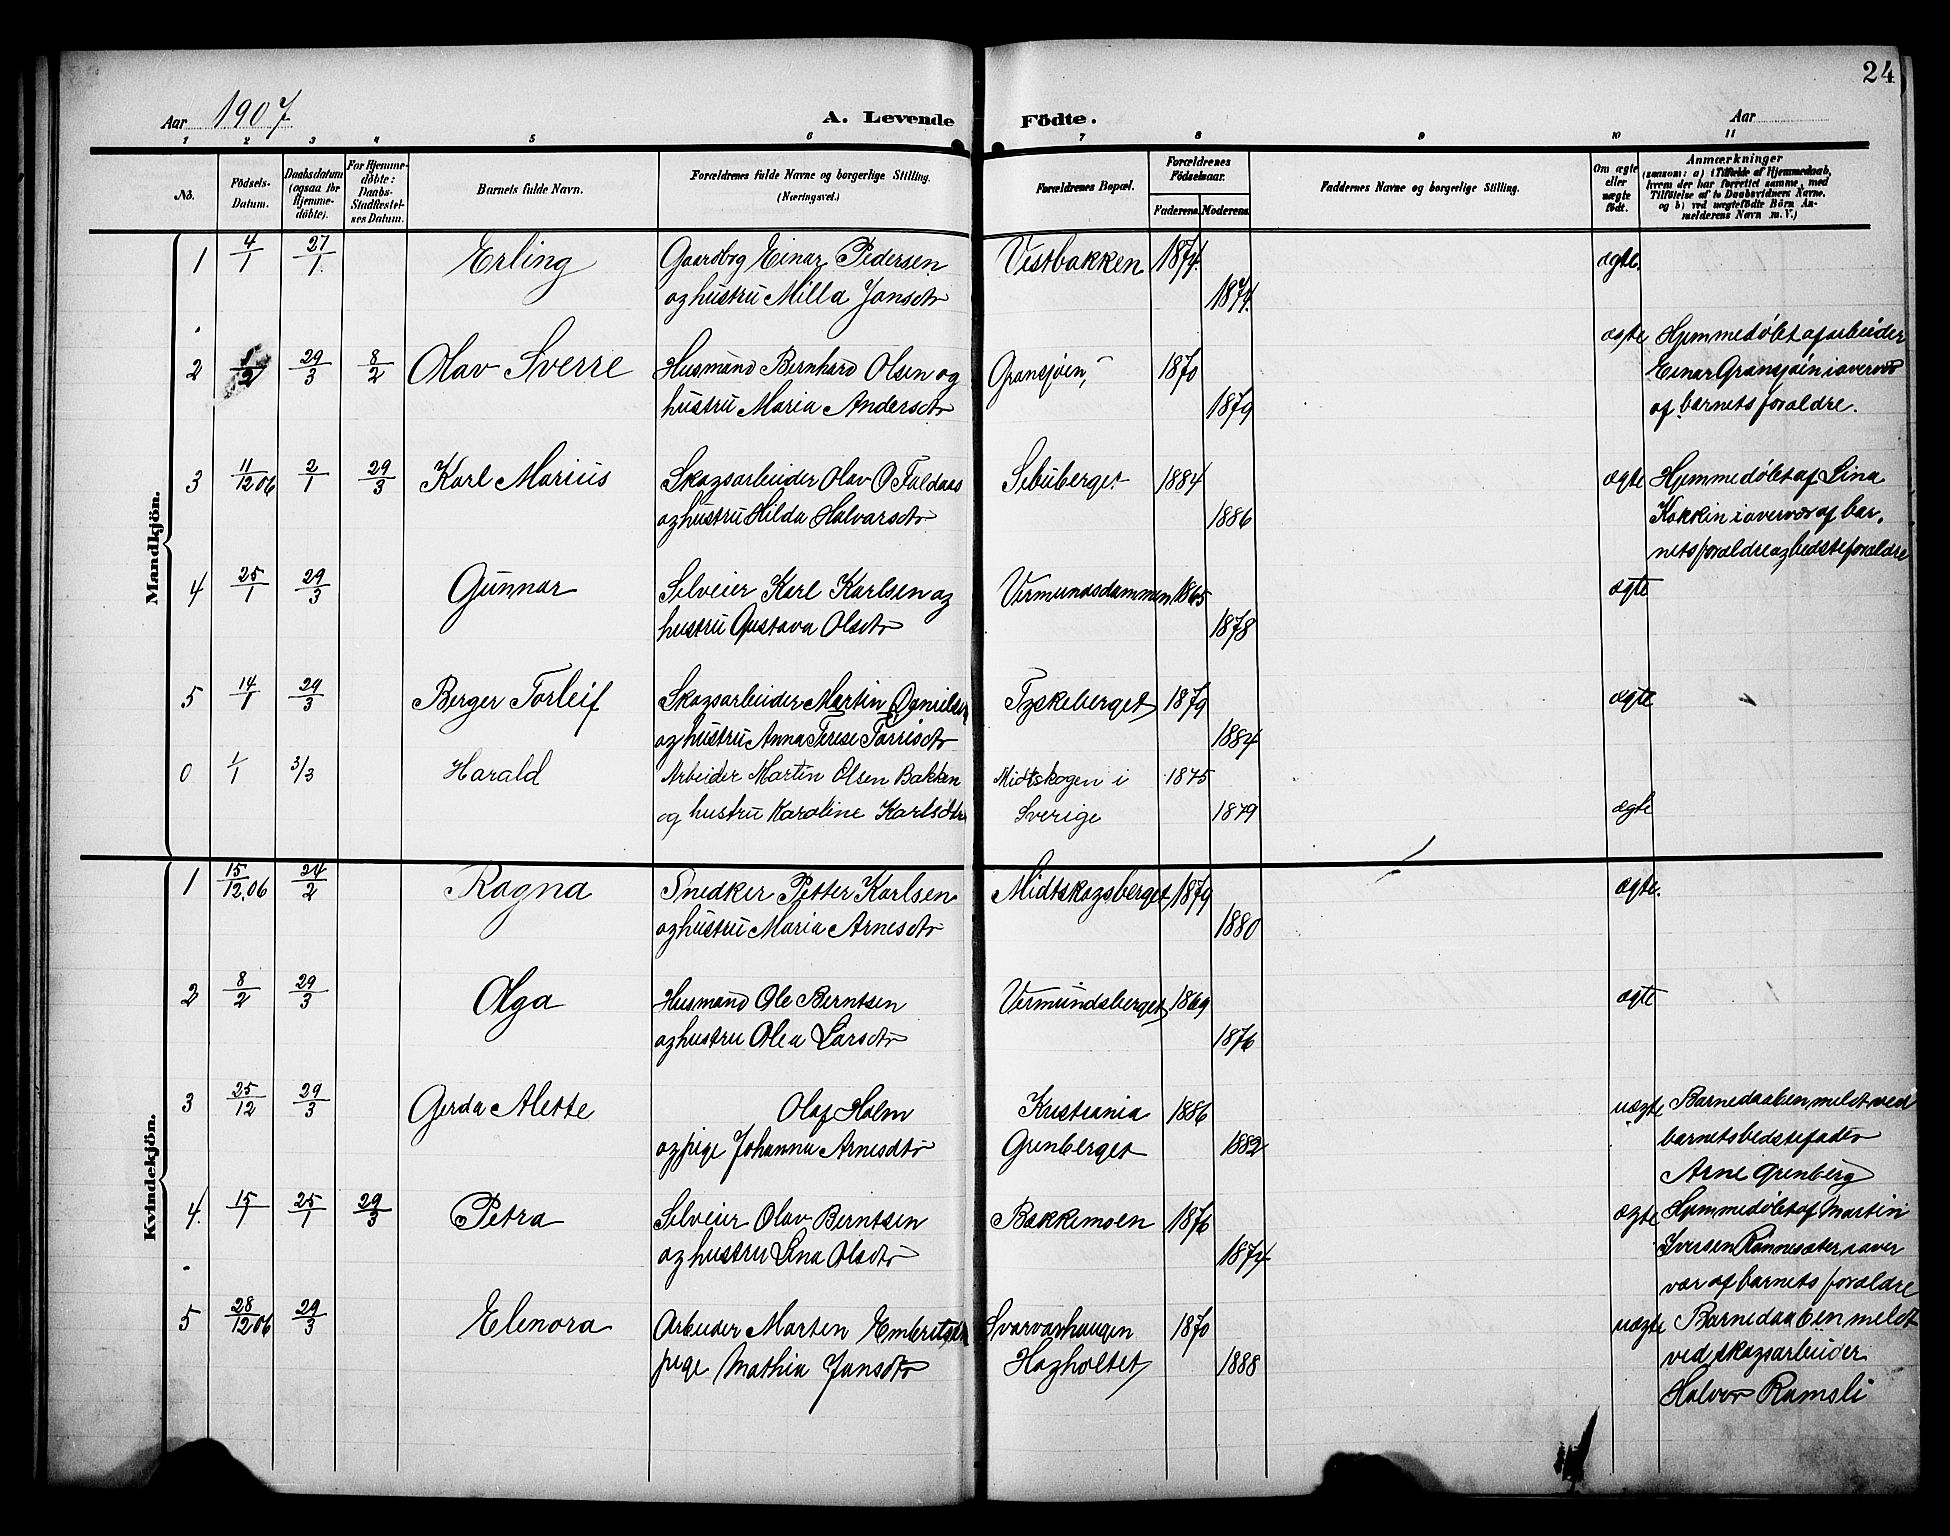 24
Aar 1907 A. Levende Födte. Aar
1 2 3 4 5 6 7 8 9 10 11
No. Födsels-Datum. Daabsdatum (ogsaa for Hjemmedöbte). For Hjemmedöbte: Daabs-Stadfæstelses Datum. Barnets fulde Navn. Forældrenes fulde Navne og borgerlige Stilling. (Næringsvei.) Forældrenes Bopæl. Forældrenes Födselsaar. Faderens. Moderens. Faddernes Navne og borgerlige Stilling. Om ægte eller uægte født. Anmærkninger (saasom: a) i Tilfælde af Hjemmedaab, hvem der har forrettet samme, med Tilföielse af to Daabsvidners Navne, og b) ved uægtefödte Börn Anmelderens Navn m. V.)
Mandkjön.
1 4/1 27/1. Erling Gaardbrg Einar Pedersen Vestbakken 1874. ægte.
og hustru Milla Jonsdtr 1874.
2 29/3 8/2 Olav Sverre Husmand Bernhard Olsen og Gransjøen, 1870 ægte Hjemmedøbt af arbeider
hustru Maria Andersdtr 1879 Einar Gransjøen i overvær
af barnets forældre.
3 11/12 06 2/1 29/3 Karl Marius Skogsarbeider Olav O Faldaas Sibuberget 1884 ægte Hjemmedøbt af Lina
og hustru Hilda Halvorsdtr 1886 Kokkin i overvær af bar-
nets forældre og bedsteforældre
4 25/1 29/3 Gunnar Selveier Karl Karlsen og Vermundsdammen 1865 ægte
hustru Gustava Olsdtr 1878
5 14/1 29/3 Berger Torleif Skogsarbeider Martin Danielsen Tyskeberget 1879 ægte
og hustru Anna Terese Torrisdtr 1884
0 1/1 3/3 Harald Arbeider Martin Olsen Bakken Midtskogen i 1875
og hustru Karoline Karlsdtr Sverige 1879 ægte
Kvindekjön.
1 15/12.06 24/2 Ragna Snedker Petter Karlsen Midtskogsberget 1879 ægte.
og hustru Maria Arnesdtr 1880
2 8/2 29/3 Olga Husmand Ole Berntsen Vermundsberget 1869 ægte
og hustru Olea Larsdtr 1876
3 25/12 29/3 Gerda Alette Olaf Holm Kristiania 1886 uægte Barnedaaben meldt ved
og pige Johanna Arnesdtr Grenberget 1882 barnets bedstefader
Arne Grenberg
4. 15/1 25/1 29/3 Petra Selveier Olav Berntsen Bakkemoen 1876 ægte Hjemmedøbt af Martin
og hustru Lina Olsdtr 1874 Iversen Rønnesæter i over
vær af barnets forældre
5 28/12 06 29/3 Elenora Arbeider Morten Embretsen Svarvarhaugen 1870 uægte Barnedaaben meldt
pige Mathia Jansdtr Hagholtet 1888 ved skogsarbeider
Halvor Ramsli